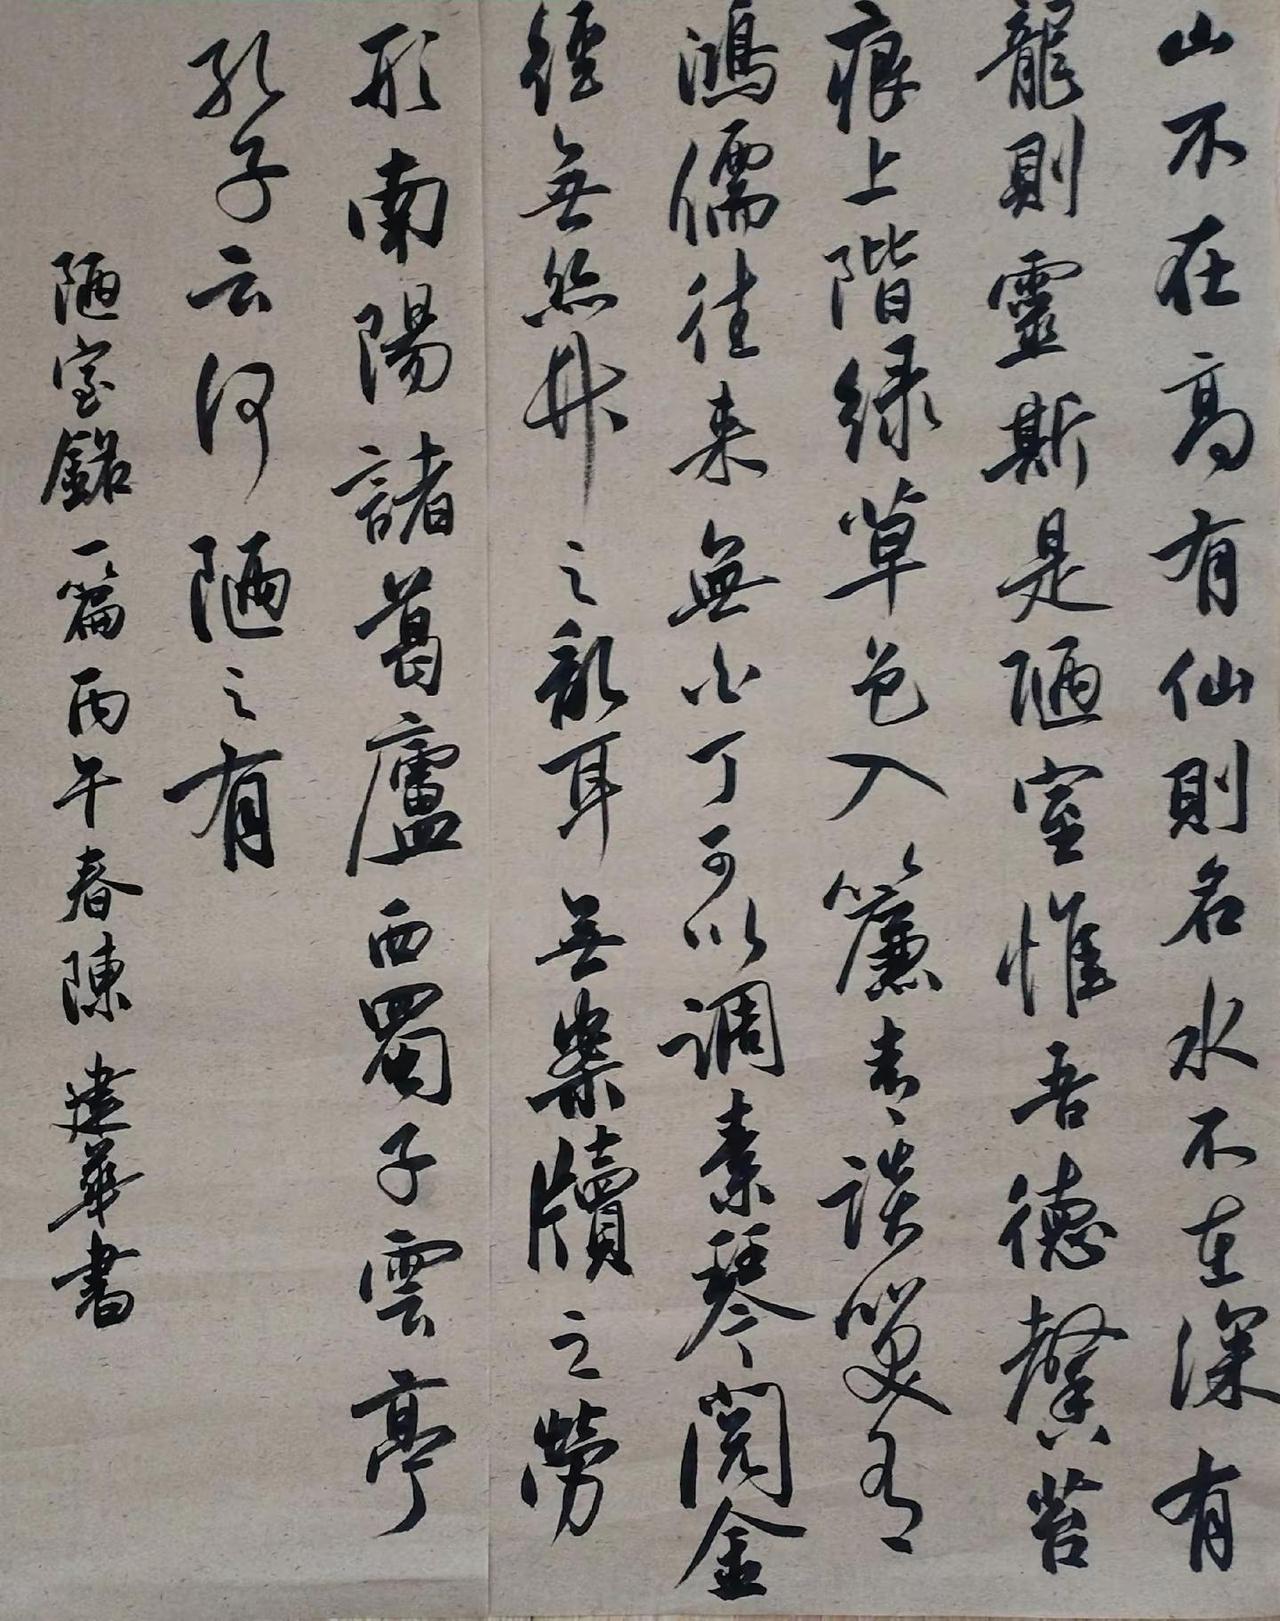 山不在高有仙則名水不在深有
龍則靈斯是陋室惟吾德馨苔
痕上階緑草色入簾青談笑有
鴻儒往来無白丁可以調素琴閱金
經無絲竹之亂耳無案牘之勞
形南陽諸葛廬西蜀子雲亭
孔子云何陋之有
陋室銘一篇丙午春陳建華書